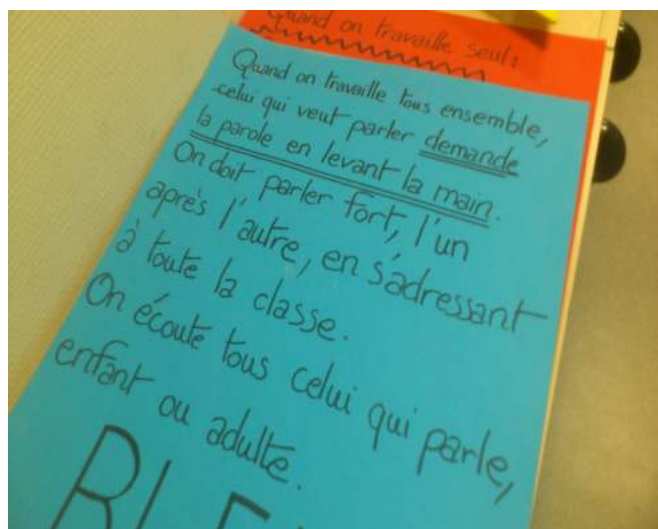 Quand on travaille seul :
Quand on travaille tous ensemble,
celui qui veut parler demande
la parole en levant la main.
On doit parler fort, l'un
après l'autre, en s'adressant
à toute la classe.
On écoute tous celui qui parle,
enfant ou adulte.